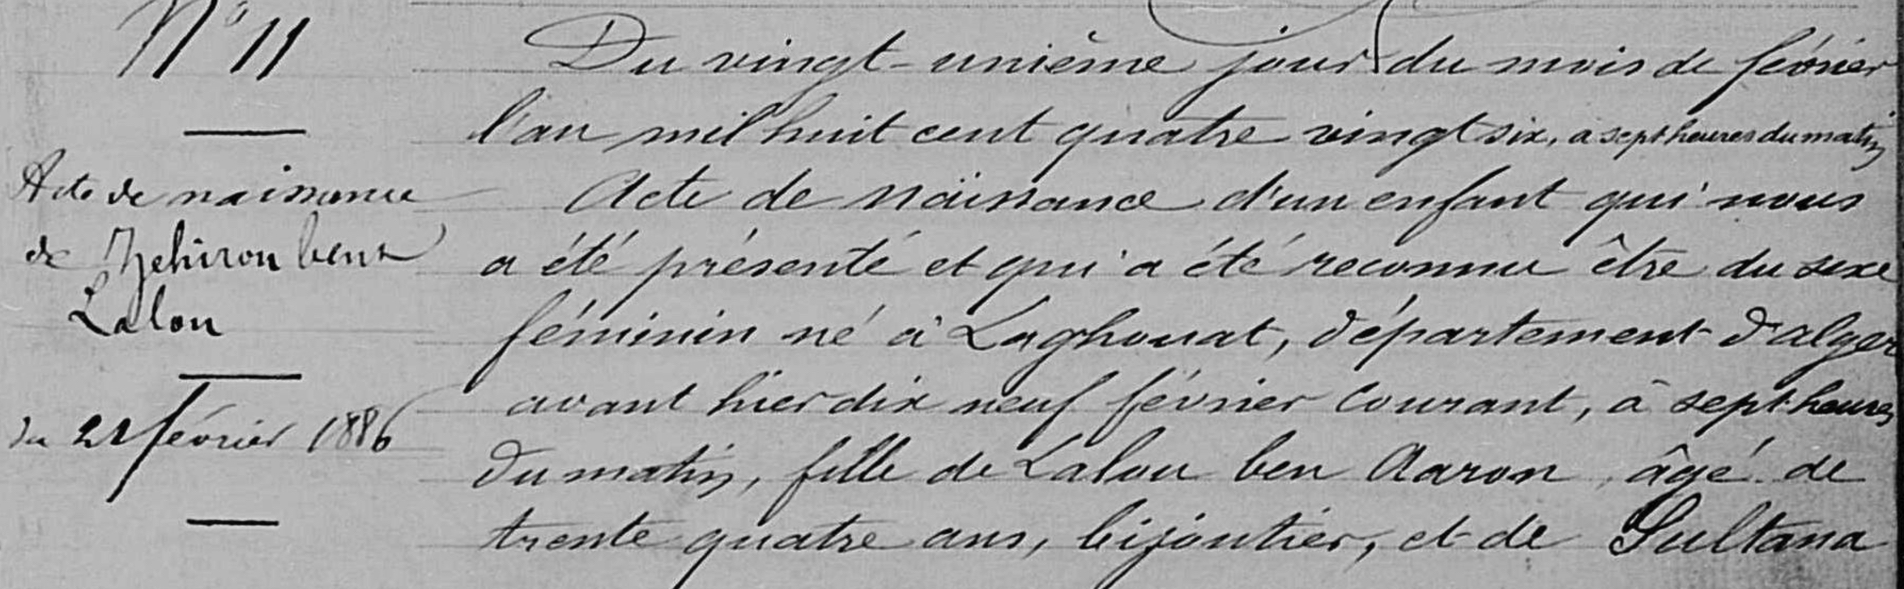 N° 11
Acte de naissance
de Zehiron bent
Lalou
du 21 février 1886
Du vingt-unième jour du mois de février
l'an mil huit cent quatre vingt six, à sept heures du matin
Acte de naissance d'un enfant qui nous
a été présenté et qui a été reconnu être du sexe
féminin né à Laghouat, département d'alger
avant hier dix neuf février courant, à sept heures
du matin, fille de Lalou ben Aaron, âgé de
trente quatre ans, bijoutier, et de Sultana